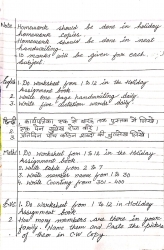 Note: Homework should be done in holiday
homework copies.
Homework should be done in neat
handwriting.
10 marks will be given for each
subject.
Eng: 1. Do worksheet from 1 to 12 in the Holiday
Assignment book
2. Write one page handwriting daily
3. Write five dictation words daily.
Hindi:
Math: 1. Do worksheet from 1 to 12 in the Holiday
Assignment book.
2. Write table from 2 to 7
3. Write number name from 1 to 50
4. Write Counting from 351 - 400
EVS: 1. Do worksheet from 1 to 12 in Holiday
Assignment book
2. How many members are there in your
family. Name them and Paste the picture
of them in CW Copy